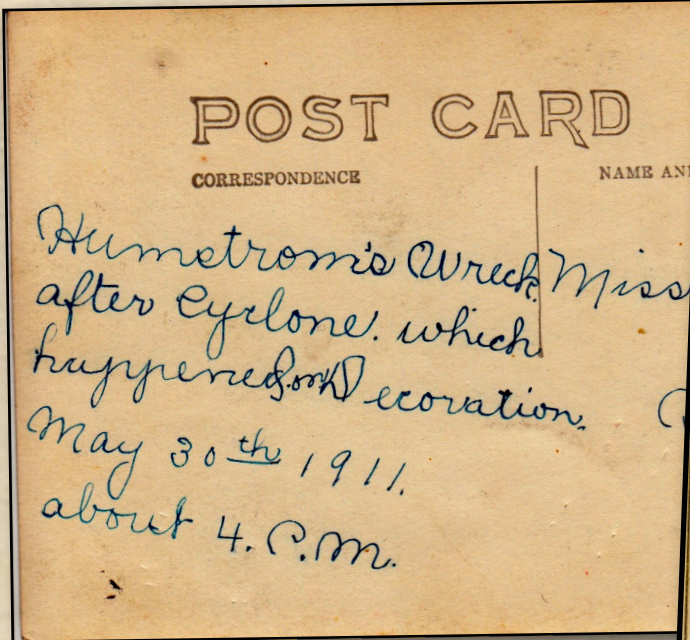 POST CARD
CORRESPONDENCE
NAME AN
Humstrom's Wreck Miss
after Cyclone. which
happened on Decoration.
May 30th 1911.
about 4. P.M.